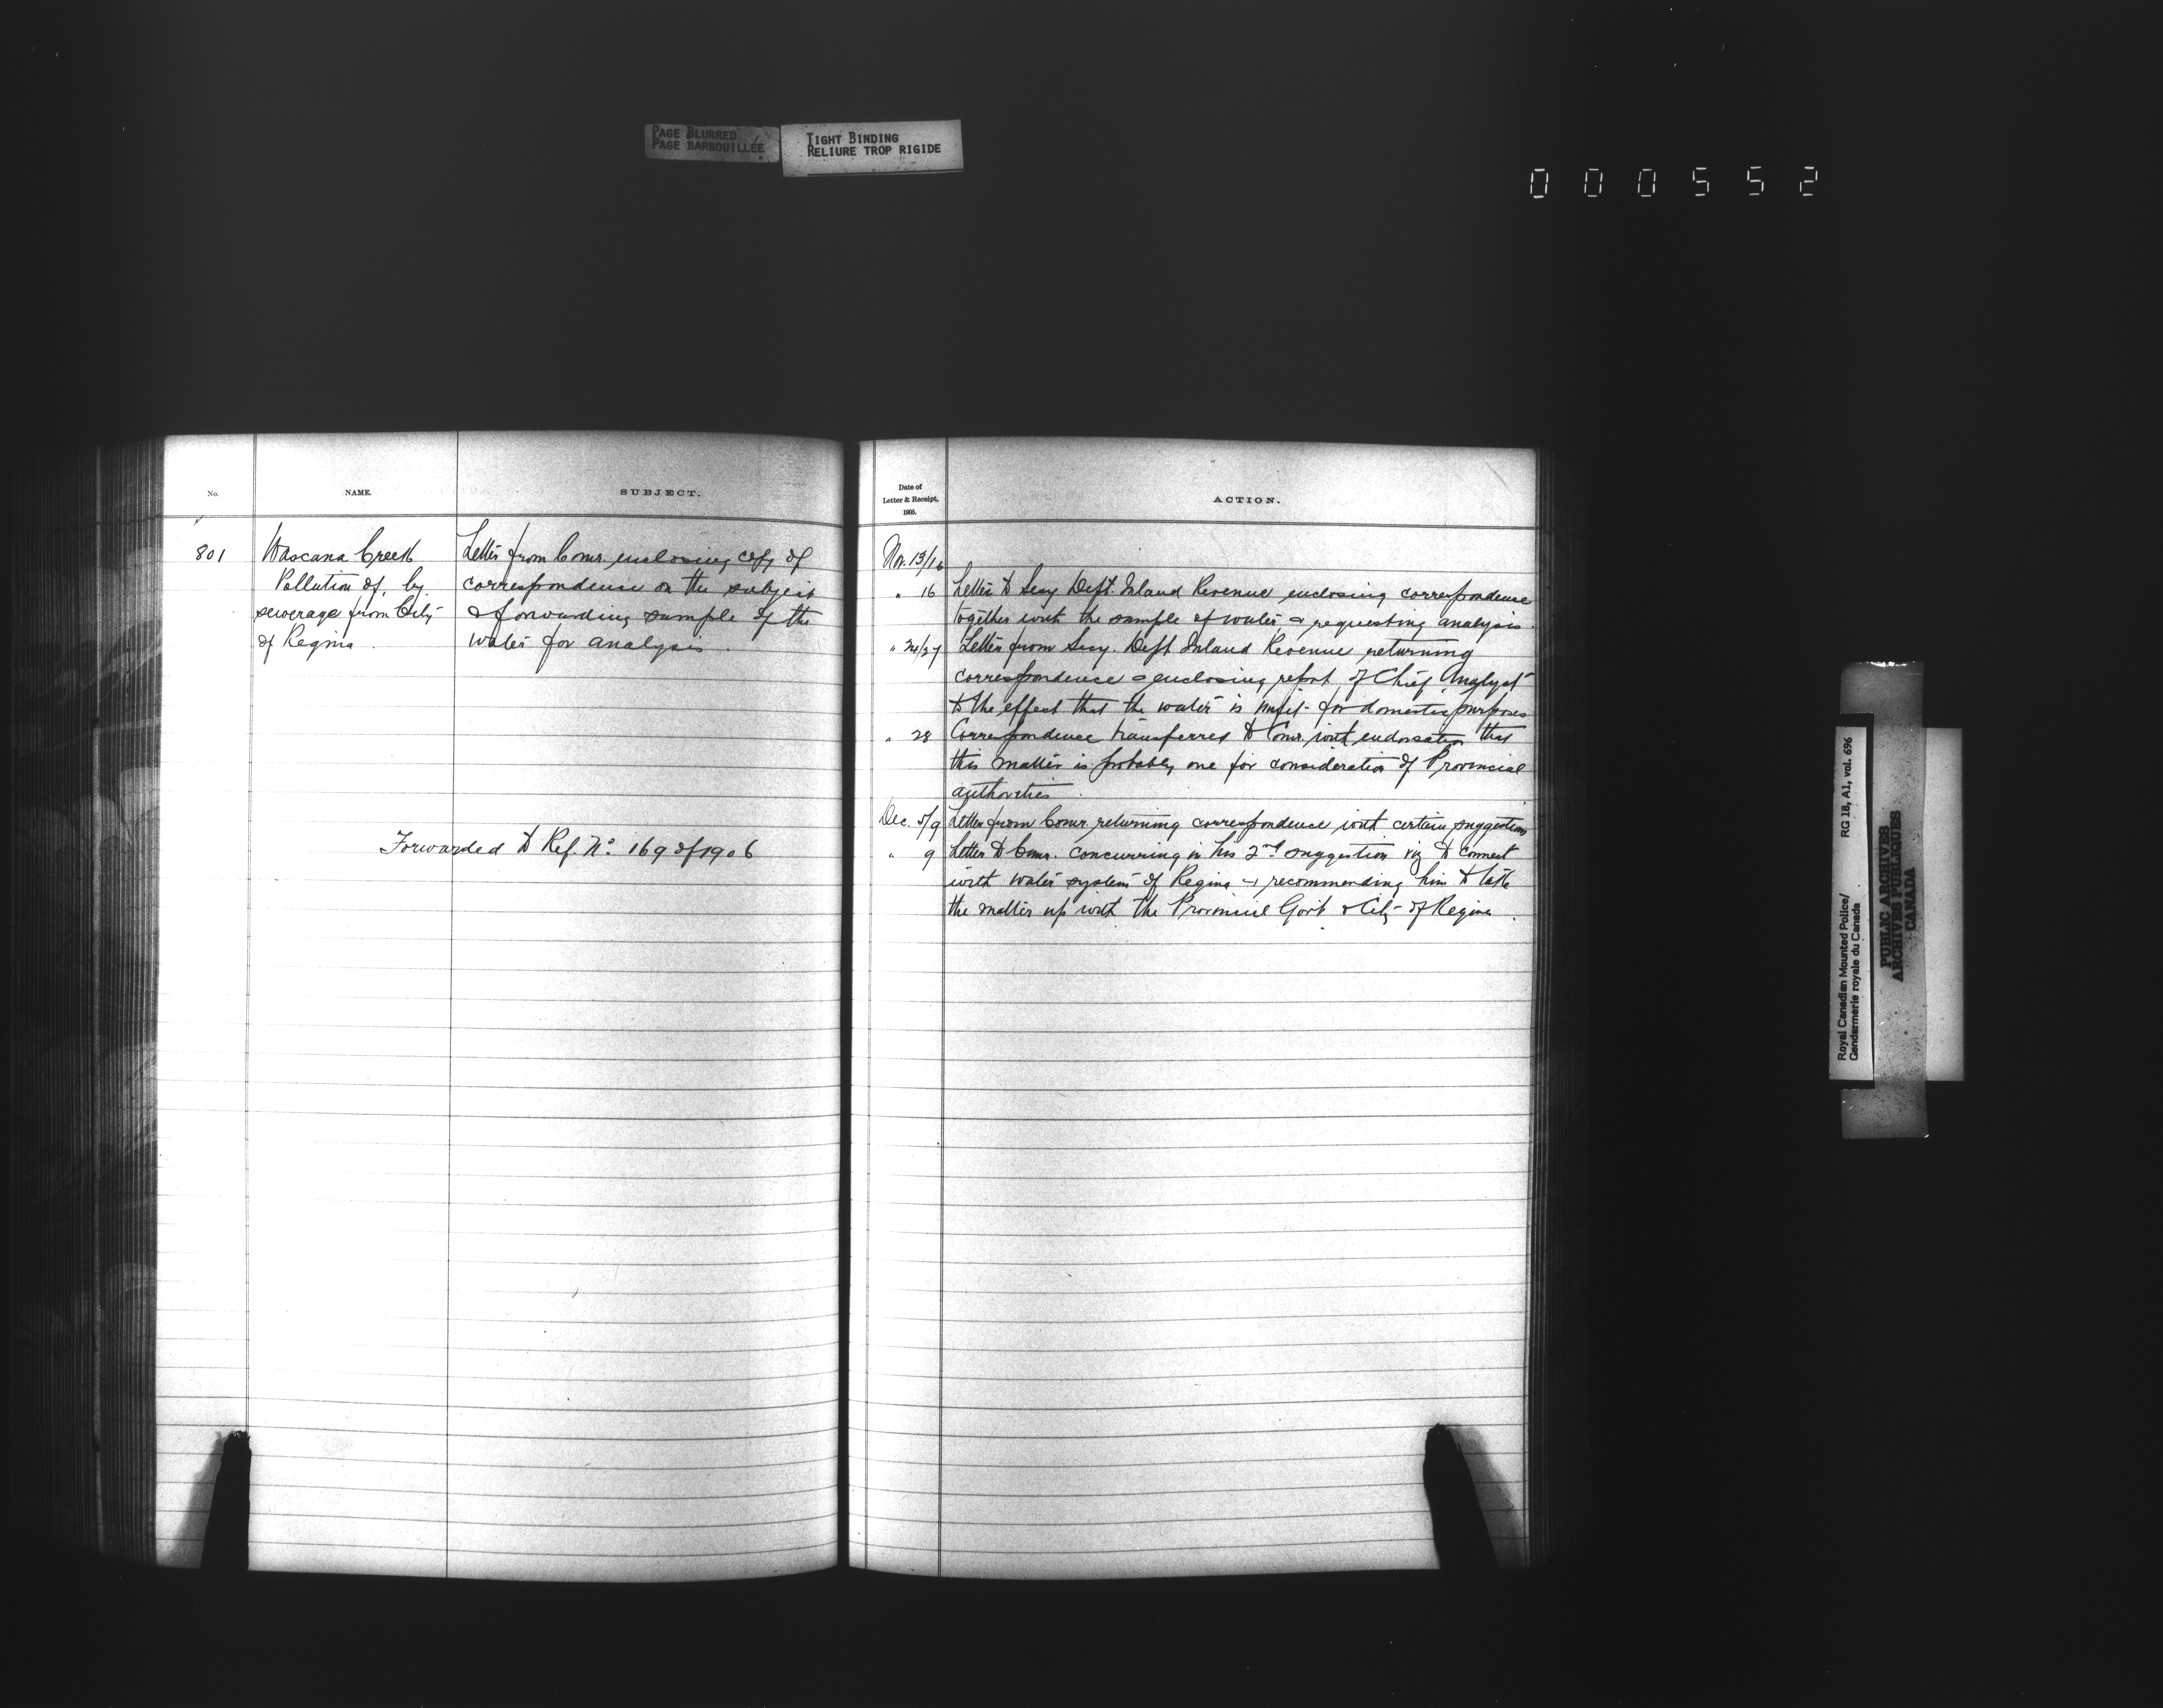 PAGE BLURRED
PAGE BARBOUILLÉE
TIGHT BINDING
RELIURE TROP RIGIDE
000552
No.
NAME.
SUBJECT.
801
Wascana Creek
Pollution of, by
sewerage from City
of Regina.
Letter from Comr. enclosing copy of
correspondence on the subject
& forwarding sample of the
water for analysis.
Forwarded to Ref. No. 169 of 1906
Date of
Letter & Receipt,
1905.
ACTION.
Nov. 13/16
" 16 Letter to Secy Dept. Inland Revenue enclosing correspondence
together with the sample of water & requesting analysis.
" 24/27 Letter from Secy. Dept Inland Revenue returning
correspondence & enclosing report of Chief Analyst
to the effect that the water is unfit for domestic purposes
" 28 Correspondence transferred to Comr. with endorsation that
this matter is probably one for consideration of Provincial
authorities.
Dec. 5/9 Letter from Comr. returning correspondence with certain suggestions
" 9 Letter to Comr. concurring in his 2nd suggestion viz to connect
with water system of Regina & recommending him to take
the matter up with the Provincial Govt & City of Regina.
Royal Canadian Mounted Police/ RG 18, A1, vol. 696
Gendarmerie royale du Canada
PUBLIC ARCHIVES
ARCHIVES PUBLIQUES
CANADA